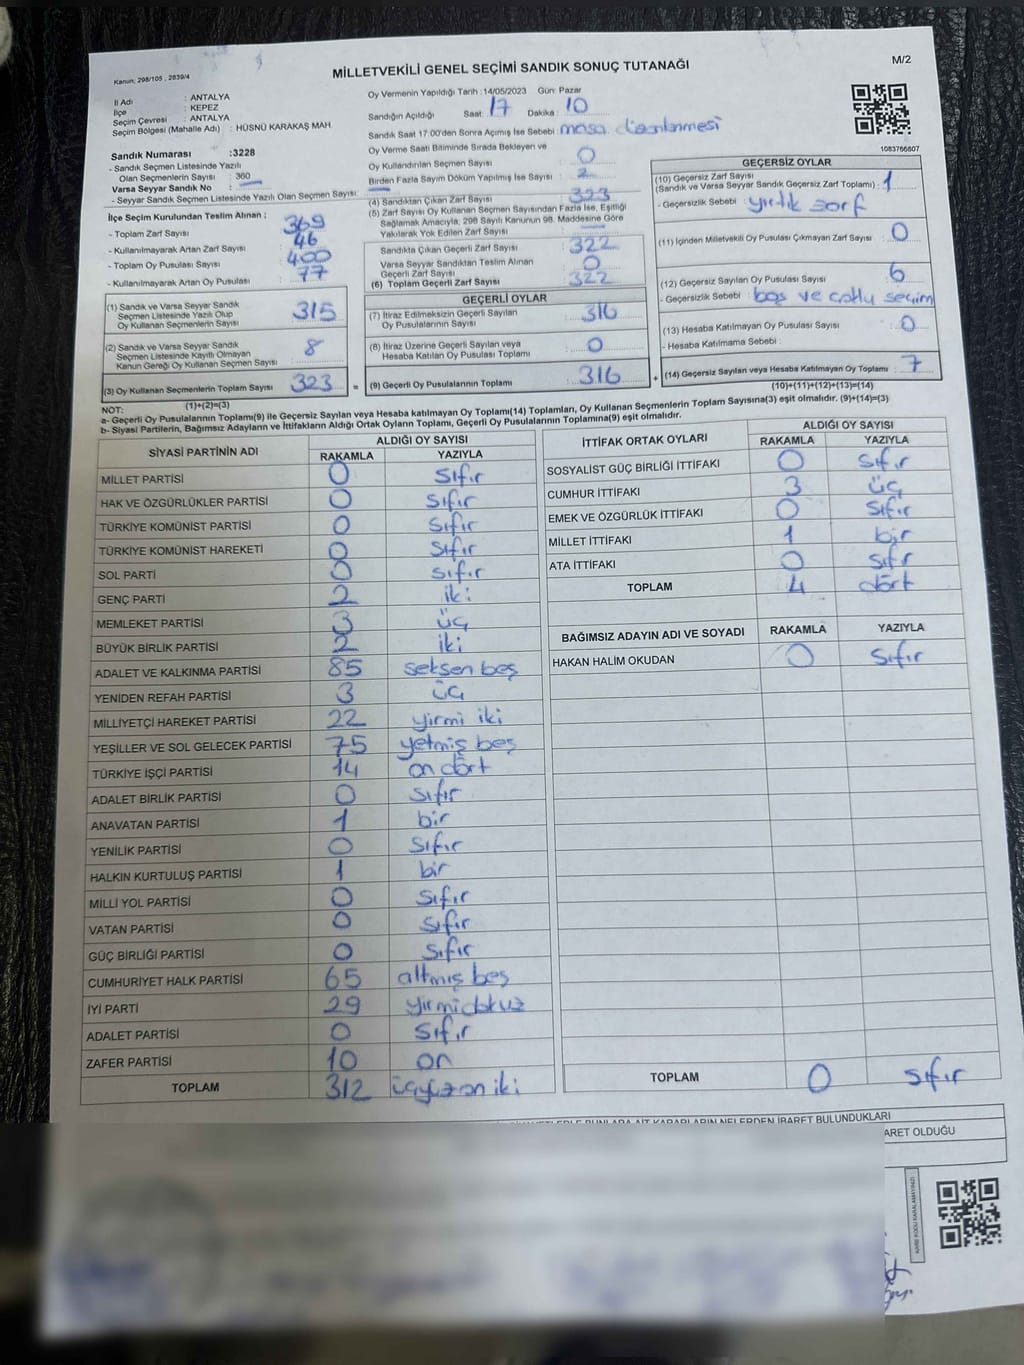 Kanun, 298/105 , 2839/4
MİLLETVEKİLİ GENEL SEÇİMİ SANDIK SONUÇ TUTANAĞI
M/2
İl Adı : ANTALYA
İlçe : KEPEZ
Seçim Çevresi : ANTALYA
Seçim Bölgesi (Mahalle Adı) : HÜSNÜ KARAKAŞ MAH.
Sandık Numarası :3228
- Sandık Seçmen Listesinde Yazılı
Olan Seçmenlerin Sayısı : 360
Varsa Seyyar Sandık No :
- Seyyar Sandık Seçmen Listesinde Yazılı Olan Seçmen Sayısı:
İlçe Seçim Kurulundan Teslim Alınan ;
- Toplam Zarf Sayısı : 369
- Kullanılmayarak Artan Zarf Sayısı : 46
- Toplam Oy Pusulası Sayısı : 400
- Kullanılmayarak Artan Oy Pusulası : 77
(1) Sandık ve Varsa Seyyar Sandık
Seçmen Listesinde Yazılı Olup
Oy Kullanan Seçmenlerin Sayısı : 315
(2) Sandık ve Varsa Seyyar Sandık
Seçmen Listesinde Kayıtlı Olmayan
Kanun Gereği Oy Kullanan Seçmen Sayısı : 8
(3) Oy Kullanan Seçmenlerin Toplam Sayısı : 323 =
(1)+(2)=(3)
Oy Vermenin Yapıldığı Tarih :14/05/2023 Gün: Pazar
Sandığın Açıldığı Saat: 17 Dakika : 10
Sandık Saat 17:00'den Sonra Açımış İse Sebebi : masa düzenlenmesi
Oy Verme Saati Bitiminde Sırada Bekleyen ve
Oy Kullandırılan Seçmen Sayısı : 0
Birden Fazla Sayım Döküm Yapılmış İse Sayısı : 2
(4) Sandıktan Çıkan Zarf Sayısı : 323
(5) Zarf Sayısı Oy Kullanan Seçmen Sayısından Fazla İse, Eşitliği
Sağlamak Amacıyla, 298 Sayılı Kanunun 98. Maddesine Göre
Yakılarak Yok Edilen Zarf Sayısı :
Sandıkta Çıkan Geçerli Zarf Sayısı : 322
Varsa Seyyar Sandıktan Teslim Alınan
Geçerli Zarf Sayısı : 0
(6) Toplam Geçerli Zarf Sayısı : 322
GEÇERLİ OYLAR
(7) İtiraz Edilmeksizin Geçerli Sayılan
Oy Pusulalarının Sayısı : 316
(8) İtiraz Üzerine Geçerli Sayılan veya
Hesaba Katılan Oy Pusulası Toplamı : 0
(9) Geçerli Oy Pusulalarının Toplamı : 316 +
1083766807
GEÇERSİZ OYLAR
(10) Geçersiz Zarf Sayısı
(Sandık ve Varsa Seyyar Sandık Geçersiz Zarf Toplamı) : 1
- Geçersizlik Sebebi : yırtık zarf
(11) İçinden Milletvekili Oy Pusulası Çıkmayan Zarf Sayısı : 0
(12) Geçersiz Sayılan Oy Pusulası Sayısı : 6
- Geçersizlik Sebebi : boş ve çoklu seçim
(13) Hesaba Katılmayan Oy Pusulası Sayısı : 0
- Hesaba Katılmama Sebebi :
(14) Geçersiz Sayılan veya Hesaba Katılmayan Oy Toplamı : 7
(10)+(11)+(12)+(13)=(14)
NOT:
a- Geçerli Oy Pusulalarının Toplamı(9) ile Geçersiz Sayılan veya Hesaba katılmayan Oy Toplamı(14) Toplamları, Oy Kullanan Seçmenlerin Toplam Sayısına(3) eşit olmalıdır. (9)+(14)=(3)
b- Siyasi Partilerin, Bağımsız Adayların ve İttifakların Aldığı Ortak Oyların Toplamı, Geçerli Oy Pusulalarının Toplamına(9) eşit olmalıdır.
SİYASİ PARTİNİN ADI
ALDIĞI OY SAYISI
RAKAMLA YAZIYLA
MİLLET PARTİSİ 0 sıfır
HAK VE ÖZGÜRLÜKLER PARTİSİ 0 sıfır
TÜRKİYE KOMÜNİST PARTİSİ 0 sıfır
TÜRKİYE KOMÜNİST HAREKETİ 0 sıfır
SOL PARTİ 0 sıfır
GENÇ PARTİ 2 iki
MEMLEKET PARTİSİ 3 üç
BÜYÜK BİRLİK PARTİSİ 2 iki
ADALET VE KALKINMA PARTİSİ 85 seksen beş
YENİDEN REFAH PARTİSİ 3 üç
MİLLİYETÇİ HAREKET PARTİSİ 22 yirmi iki
YEŞİLLER VE SOL GELECEK PARTİSİ 75 yetmiş beş
TÜRKİYE İŞÇİ PARTİSİ 14 on dört
ADALET BİRLİK PARTİSİ 0 sıfır
ANAVATAN PARTİSİ 1 bir
YENİLİK PARTİSİ 0 sıfır
HALKIN KURTULUŞ PARTİSİ 1 bir
MİLLİ YOL PARTİSİ 0 sıfır
VATAN PARTİSİ 0 sıfır
GÜÇ BİRLİĞİ PARTİSİ 0 sıfır
CUMHURİYET HALK PARTİSİ 65 altmış beş
İYİ PARTİ 29 yirmi dokuz
ADALET PARTİSİ 0 sıfır
ZAFER PARTİSİ 10 on
TOPLAM 312 üçyüzon iki
İTTİFAK ORTAK OYLARI
ALDIĞI OY SAYISI
RAKAMLA YAZIYLA
SOSYALİST GÜÇ BİRLİĞİ İTTİFAKI 0 sıfır
CUMHUR İTTİFAKI 3 üç
EMEK VE ÖZGÜRLÜK İTTİFAKI 0 sıfır
MİLLET İTTİFAKI 1 bir
ATA İTTİFAKI 0 sıfır
TOPLAM 4 dört
BAĞIMSIZ ADAYIN ADI VE SOYADI RAKAMLA YAZIYLA
HAKAN HALİM OKUDAN 0 sıfır
TOPLAM 0 sıfır
BUNLARA AİT KARARLARIN NELERDEN İBARET BULUNDUKLARI
ARET OLDUĞU